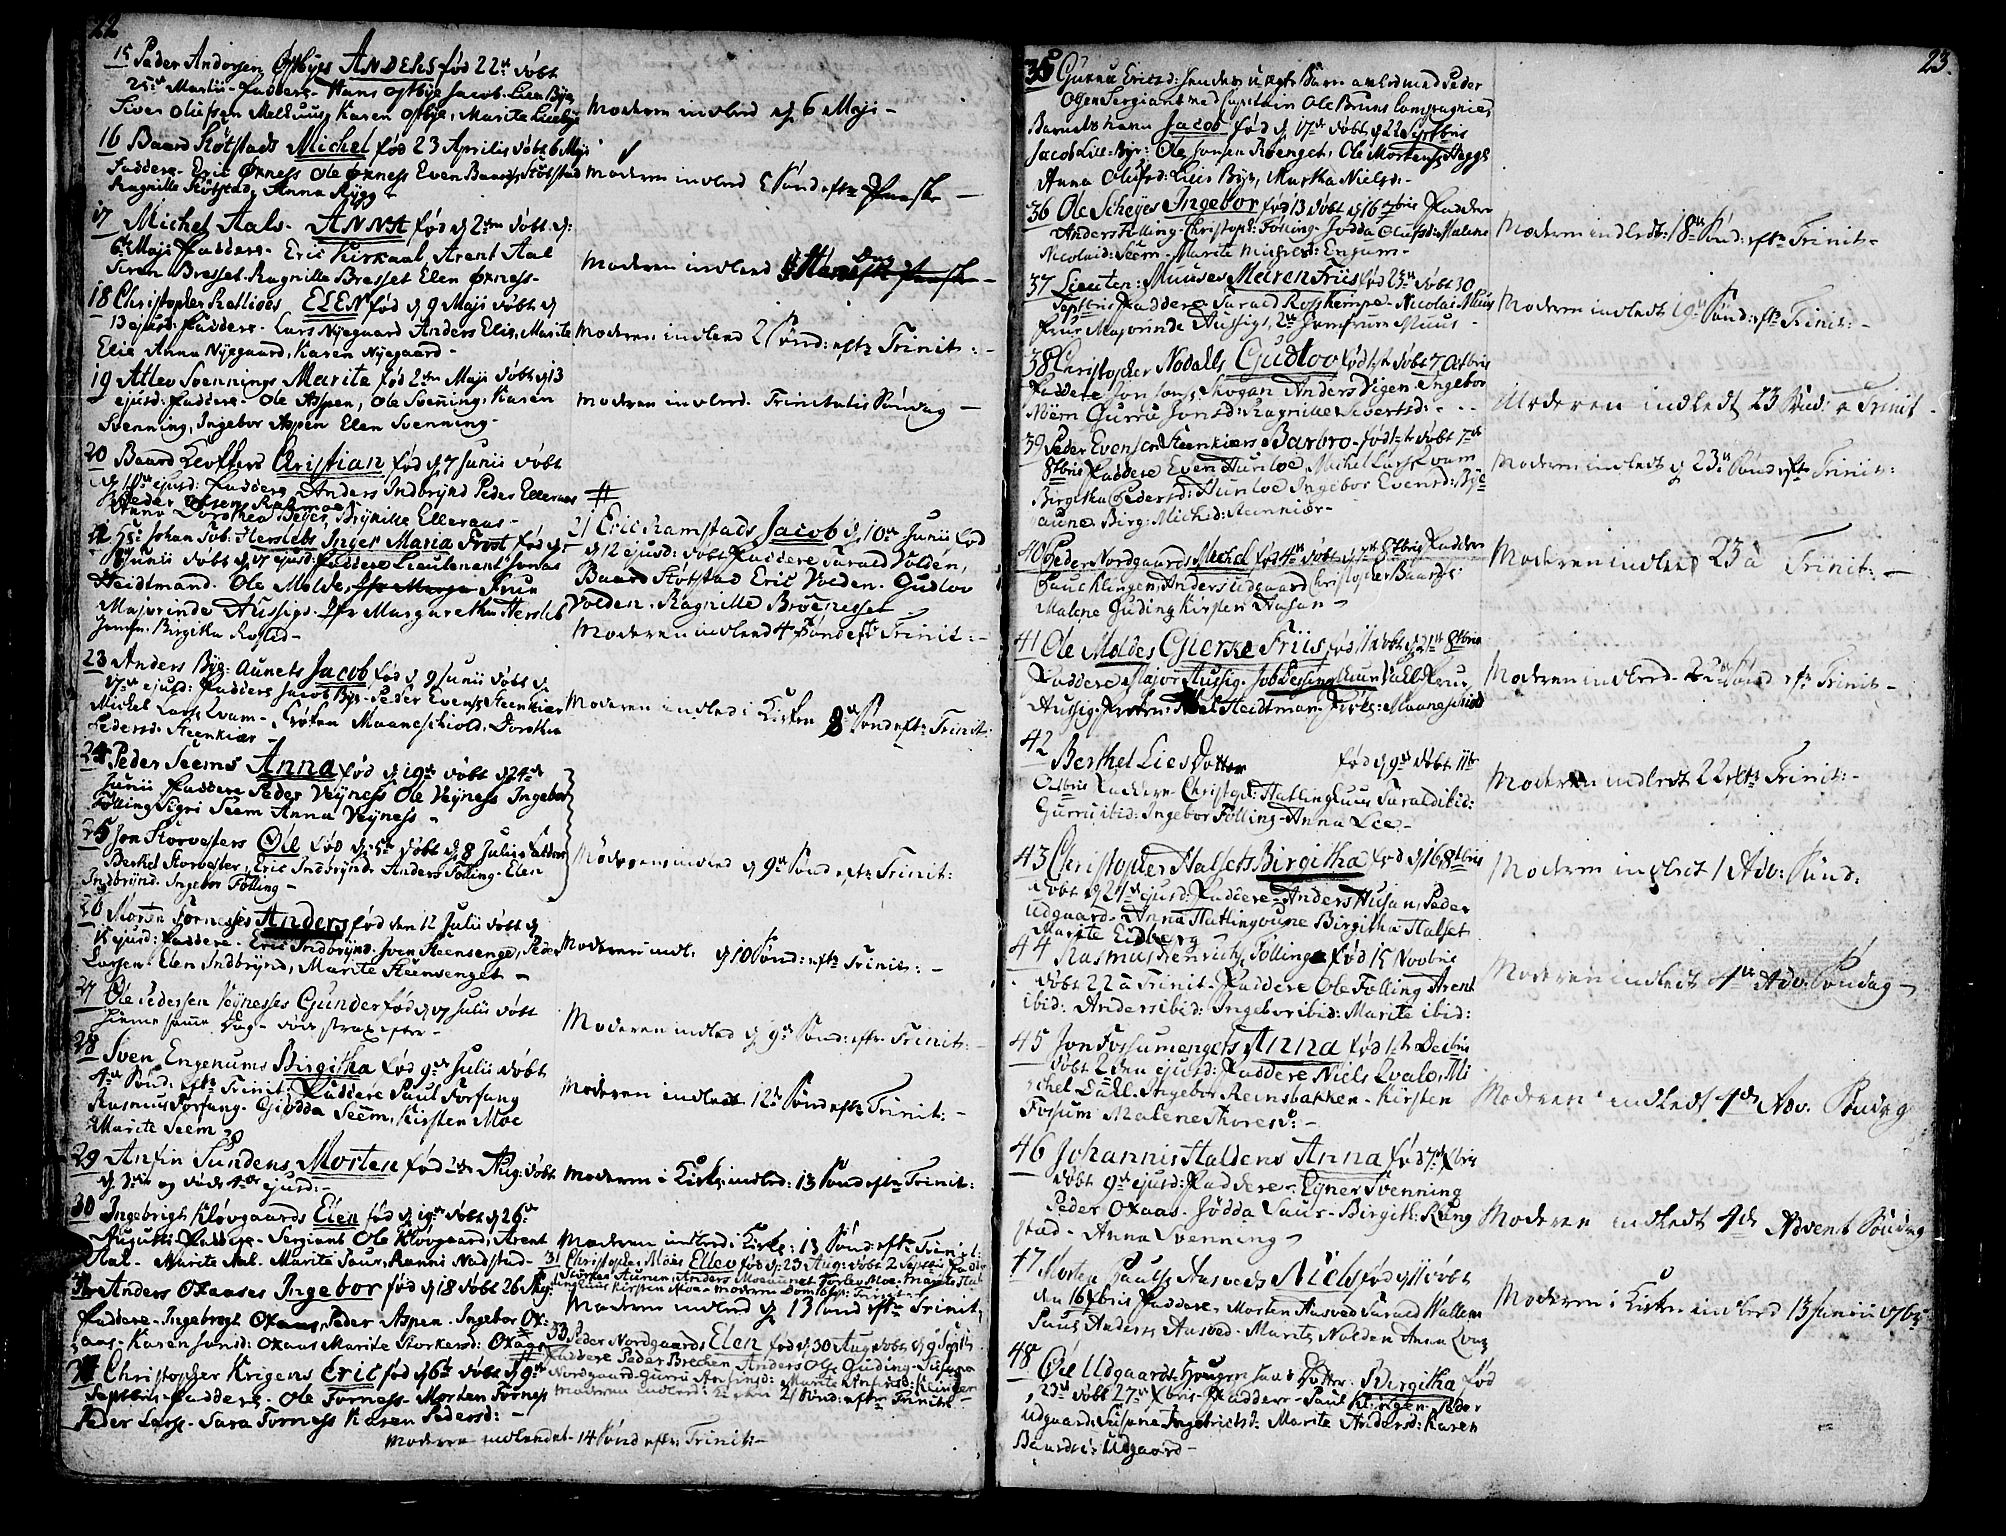 22
15 Peder Andersen Østbyes ANDERS fød 22de døbt
25de Martii. Faddere. Hans Østbye Jacob Lien Bye
Siver Olufsen Melhuus, Karen Østbye, Marite Liebye
Moderen indled d 6 Maji -
16 Baard Støtstads Michel fød 23 Aprilis døbt 6 Maji
Faddere. Eric Ørness Ole Ørness Even Baards: Støtstad
Ragnille Støtstad, Anna Rygg
Moderen indled Sønd eftr Paaske -
17 Michel Aals ANNA fød d 2den døbt d:
6te Maji Faddere. Eric Kirkaal, Arent Aal
Siren Bresset. Ragnille Bresset Elen Ørness.
Moderen indled
18 Christopher ELEN fød d 9 Maji døbt d
13 ejusd: Faddere. Lars Nyegaard Anders Elie, Marite
Elie Anna Nyegaard, Karen Nyegaard -
Moderen indled 2 Sønd: eftr Trinit: -
19 Atlev Svennings Marite fød 2den Maji døbt d 13
ejusd: Faddere. Ole Aspen, Ole Svenning, Karen
Svenning, Ingebor Aspen Elen Svenning.
Moderen indled. Trinitatis Søndag -
20 Baard Christian fød d 7 Junii døbt
d 10de ejusd: Faddere Anders Indbrynd Peder Elleraas
Peder Olsen
Anna Dorothea Beyer, Brynille Elleraas -
22 Hr: Johan Tob: Herslebs Inger Maria Frost fød d
Junii døbt d 17 ejusd: Faddere Lieutenant Jonas
Heidtmand. Ole Moldes Frue
Majorinde Aussigs. Jfr Margaretha Hersleb
Jomfr. Birgitha
21 Eric Ramstads Jacob d. 10de Junii fød
d 12 ejusd: døbt Faddere Tarald Volden,
Baard Støtstad Eric Volden. Gudlov
Volden. Ragnille Brøenesset
Moderen indled 4 Sønd eftr Trinit: -
23 Anders Bye: Aunets Jacob fød d 9 Junii døbt d
17de ejusd: Faddere Jacob Bye. Peder Evens: Steenkier
Michel Lars: Qvam. Frøken Maaneschiold. Dorothea
Pedersd: Steenkier -
Moderen indled i Kirken 8de Sønd eftr Trinit:
24 Peder Seems Anna fød d 19de døbt d 24de
Junii Faddere Peder Veyness Ole Veyness Ingebor
Følling Sigri Seem Anna Veyness -
25 Jon Storvesters Ole fød d 5te døbt d 8 Julii Faddere
Berthel Storvester, Eric Indbrynd. Anders Følling. Elen
Indbrynd. Ingebor Følling -
Mødrene indled d 9de Sønd eftr Trinit:
26 Morten Fornesses Anders fød den 12 Julii døbt d
15 ejusd: Faddere. Eric Indbrynd. Sven Steensenge, Peder
Larsen. Elen Indbrynd, Marite Steensenget -
Moderen indl: d 10 Sønd: eftr Trinit: -
27 Ole Pedersen Veynesses Gunder fød d 7 Julii døbt
hieme samme Dag. døde strax efter -
Moderen indled d 9de Sønd: eftr. Trinit: -
28 Sven Engenums Birgitha fød 9de Julii døbt
4de Sønd: eftr Trinit: Faddere Paul Forfang
Rasmus Forfang. Giødda Seem, Kirsten Moe
Marite Seem
Moderen indled 12te Sønd eftr Trinit: -
29 Anfin Sundens Morten fød 2den Aug: døbt
d 3die og døde 4de ejusd: -
Moderen i Kirk: indled: 13 Sønd eftr Trinit:
30 Ingebrigt Kløvgaards Elen fød d 19de døbt d 26de
Augusti Faddere. Sergiant Ole Kløvgaard, Arent
Aal. Marite Aal. Marite Saur, Ranni Nadstad -
Moderen indled i Kirk: 13 Sønd: eftr Trinit:
31 Christopher Moes Ellev fød d 23 Aug: døbt 2 Septbr:
32 Anders Oxaases Ingebor fød d 18 døbt 26 Aug:
Faddere. Ingebrigt Oxaas, Peder Aspen. Ingebor Ox-
aas. Karen Jonsd: Oxaas Marite Storkersd: Oxaas
Moderen indled d 13 Sønd eftr Trinit:
33 Peder Nordgaards Elen fød d 30 Aug døbt d 9 Septbr
Faddere Peder Brecken, Anders Ole Guding. Susana
Nordgaard. Gurru Anfinsd: Marite Anfinsd: Klingen
Moderen indled: Kirken 21 Sønd: eftr Trinit: -
34 Christopher Krigens Eric fød d 6te døbt d 9de
Septbris. Faddere. Ole Forness. Morten Forness
Peder Lars:. Sara Forness Karen Pedersd: -
Moderen indledet. 14 Sønd eftr: Trinit: -
23.
35 Gurru Ericsd: hendes uægte Barn avled med Peder
Olsen Sergiant ved Capitain Ole Bruns Compagnie,
Barnets navn Jacob fød d 17de døbt d 22 Septbris
Jacob Lill-Bye: Ole Jonsen Røenget, Ole Mortens: Hegge
Anna Olufsd: Lill Bye, Martha Nielsd: -
36 Ole Scheyes Ingebor fød 13 døbt d 16 7bris Faddere
Anders Følling. Christoph: Følling. Jødda Olufsd: Malene
Nicolaid: Seem. Marite Michelsd: Engum. -
Moderen indledt: 18de Sønd: eftr Trinit: -
37 Lieuten: Muuses Maren Friis fød 23de døbt 30
Septbris Faddere Tarald Ross Kempe. Nicolai Muus
Frue Majorinde Aussigs, 2de Jomfruer Muus -
Moderen indledt 19de Sønd: eftr Trinit: -
38 Christopher Nødalls Gudlov fød 1te døbt 7 Octbris
Faddere Jon Jons: Skogan Anders Digen. Ingebor
Moen Gurru Jonsd: Ragnille Sivertsd: - - -
Moderen indledt 23 Sønd: a Trinit -
39 Peder Evensen Steenkiærs Barbro fød 1te døbt 7de
8tbris Faddere Even Hunloe, Michel Lars: Qvam
Birgitha Pedersd: Hunloe Ingebor Evensd: Bye
aune, Birg: Michelsd: Steenkiær -
Moderen indledt d 23de Sønd eftr Trinit:
40 Peder Nordgaards Michel fød 4de døbt d 7de 8tbris Faddere
Paul Klingen, Anders Udgaard Christopher Baards:
Malene Guding Kirsten Husan -
Moderen indled 23 a Trinit: -
41 Ole Moldes Gierke Friis fød 11te døbt d 21de 8tbris
Faddere Major Aussig. Frue
Aussig. Frøken: Abel Heidtman. Frøk: Maaneschiold
Moderen indled. Sønd eftr Trinit -
42 Berthel Lies Dotter fød d 9de døbt 11te
Octbris Faddere Christoph: Hatlinghuus Tarald ibid:
Gurru ibid: Ingebor Følling Anna Lee -
Moderen indledt 22 eftr Trinit: -
43 Christopher Halsets Birgitha fød d 16 8tbris
døbt d 24de ejusd: Faddere. Anders Husan, Peder
Udgaard. Anna Hatlingoune Birgitha Halset
Marite Eidberg
Moderen indledt 1 Adv: Sønd:
44 Rasmus Henrichs: Følling fød 15 Novbris
døbt 22 a Trinit. Faddere Ole Følling Arent
ibid: Anders ibid: Ingebor ibid: Marite ibid:
Moderen indledt 4de Adv: Søndag -
45 Jon Fossumengets Anna fød 1te Decbris
døbt 2den ejusd: Faddere Niels Qvale, Mi
chel Dahl. Ingebor Reinsbakken. Kirsten
Fossum Malene Thoresd: -
Moderen indledt 4de Adv. Søndag
46 Johannis Haldens Anna fød 7de Xbris
døbt 9de ejusd: Faddere. Egner Svenning
Peder Oxaas. Jødda Saur. Birgith: Rung
stad. Anna Svenning -
Moderen indledt 4de Advent Søndag
47 Morten Pauls: Aasveds Niels fød d 11 døbt
den 16 Xbris Faddere. Morten Aasved Tarald Wallem
Paul Anders: Aasved. Marite Nolden Anna Qvar
Moderen i Kirken indled 13 Junii 1763
48 Ole Udgaards Hougen hans Dotter. Birgitha fød
23de døbt 27de Xbris. Faddere. Paul Klingen. Peder
Udgaard, Susane Ingebrichtsd: Marite Andersd: Karen
Baardsd: Udgaard -